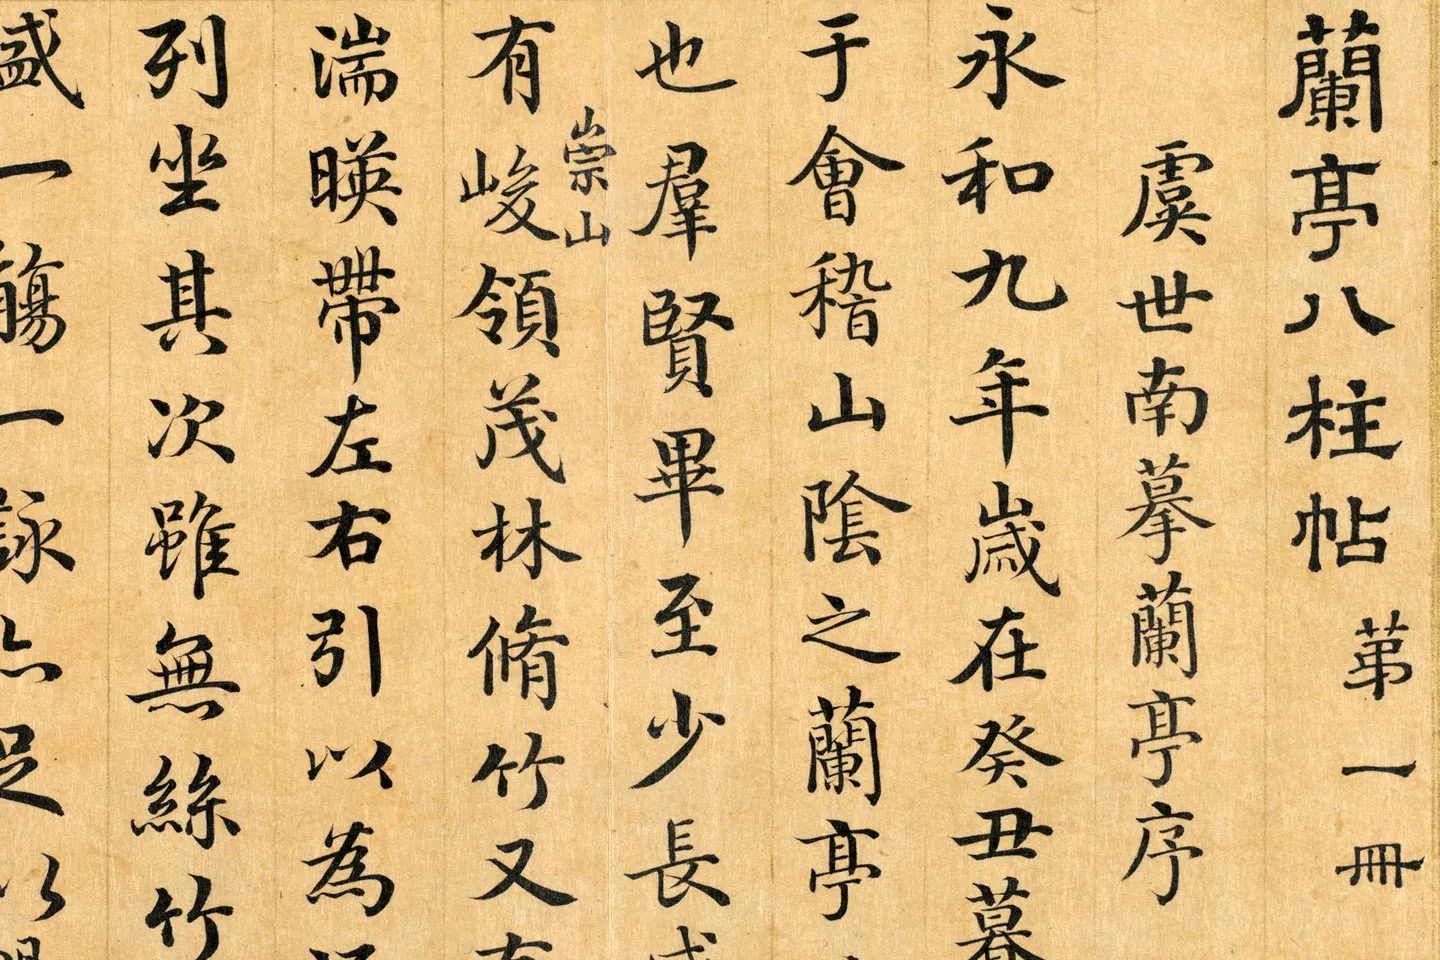 蘭亭八柱帖 苐一冊
虞世南摹蘭亭序
永和九年歲在癸丑暮
于會稽山陰之蘭亭
也羣賢畢至少長咸
崇山
有峻領茂林脩竹又有
湍暎帶左右引以為
列坐其次雖無絲竹
盛一觴一詠亦足以